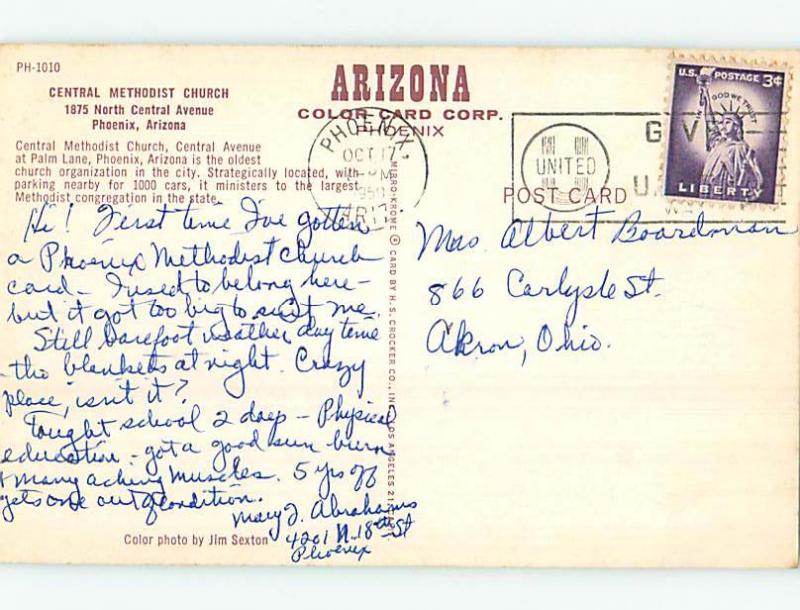 PH-1010
CENTRAL METHODIST CHURCH
1875 North Central Avenue
Phoenix, Arizona
Central Methodist Church, Central Avenue
at Palm Lane, Phoenix, Arizona is the oldest
church organization in the city. Strategically located, with
parking nearby for 1000 cars, it ministers to the largest
Methodist congregation in the state.
ARIZONA
COLOR CARD CORP.
PHOENIX
PHOENIX,
OCT 17
ARIZ.
UNITED
U.S. POSTAGE 3¢
IN GOD WE TRUST
LIBERTY
POST CARD
MIRRO-KROME ® CARD BY H. S. CROCKER CO., INC., LOS ANGELES
Hi! First time I've gotten
a Phoenix Methodist Church
card - I used to belong here -
but it got too big to suit me.
Still barefoot weather day time
- the blankets at night. Crazy
place, isn't it?
Taught school 2 days - Physical
education - got a good sun burn
+ many aching muscles. 5 yrs off
gets one out of condition.
Mary J. Abrahams
4201 N. 18th St
Phoenix
Mrs. Albert Boardman
866 Carlysle St.
Akron, Ohio.
Color photo by Jim Sexton